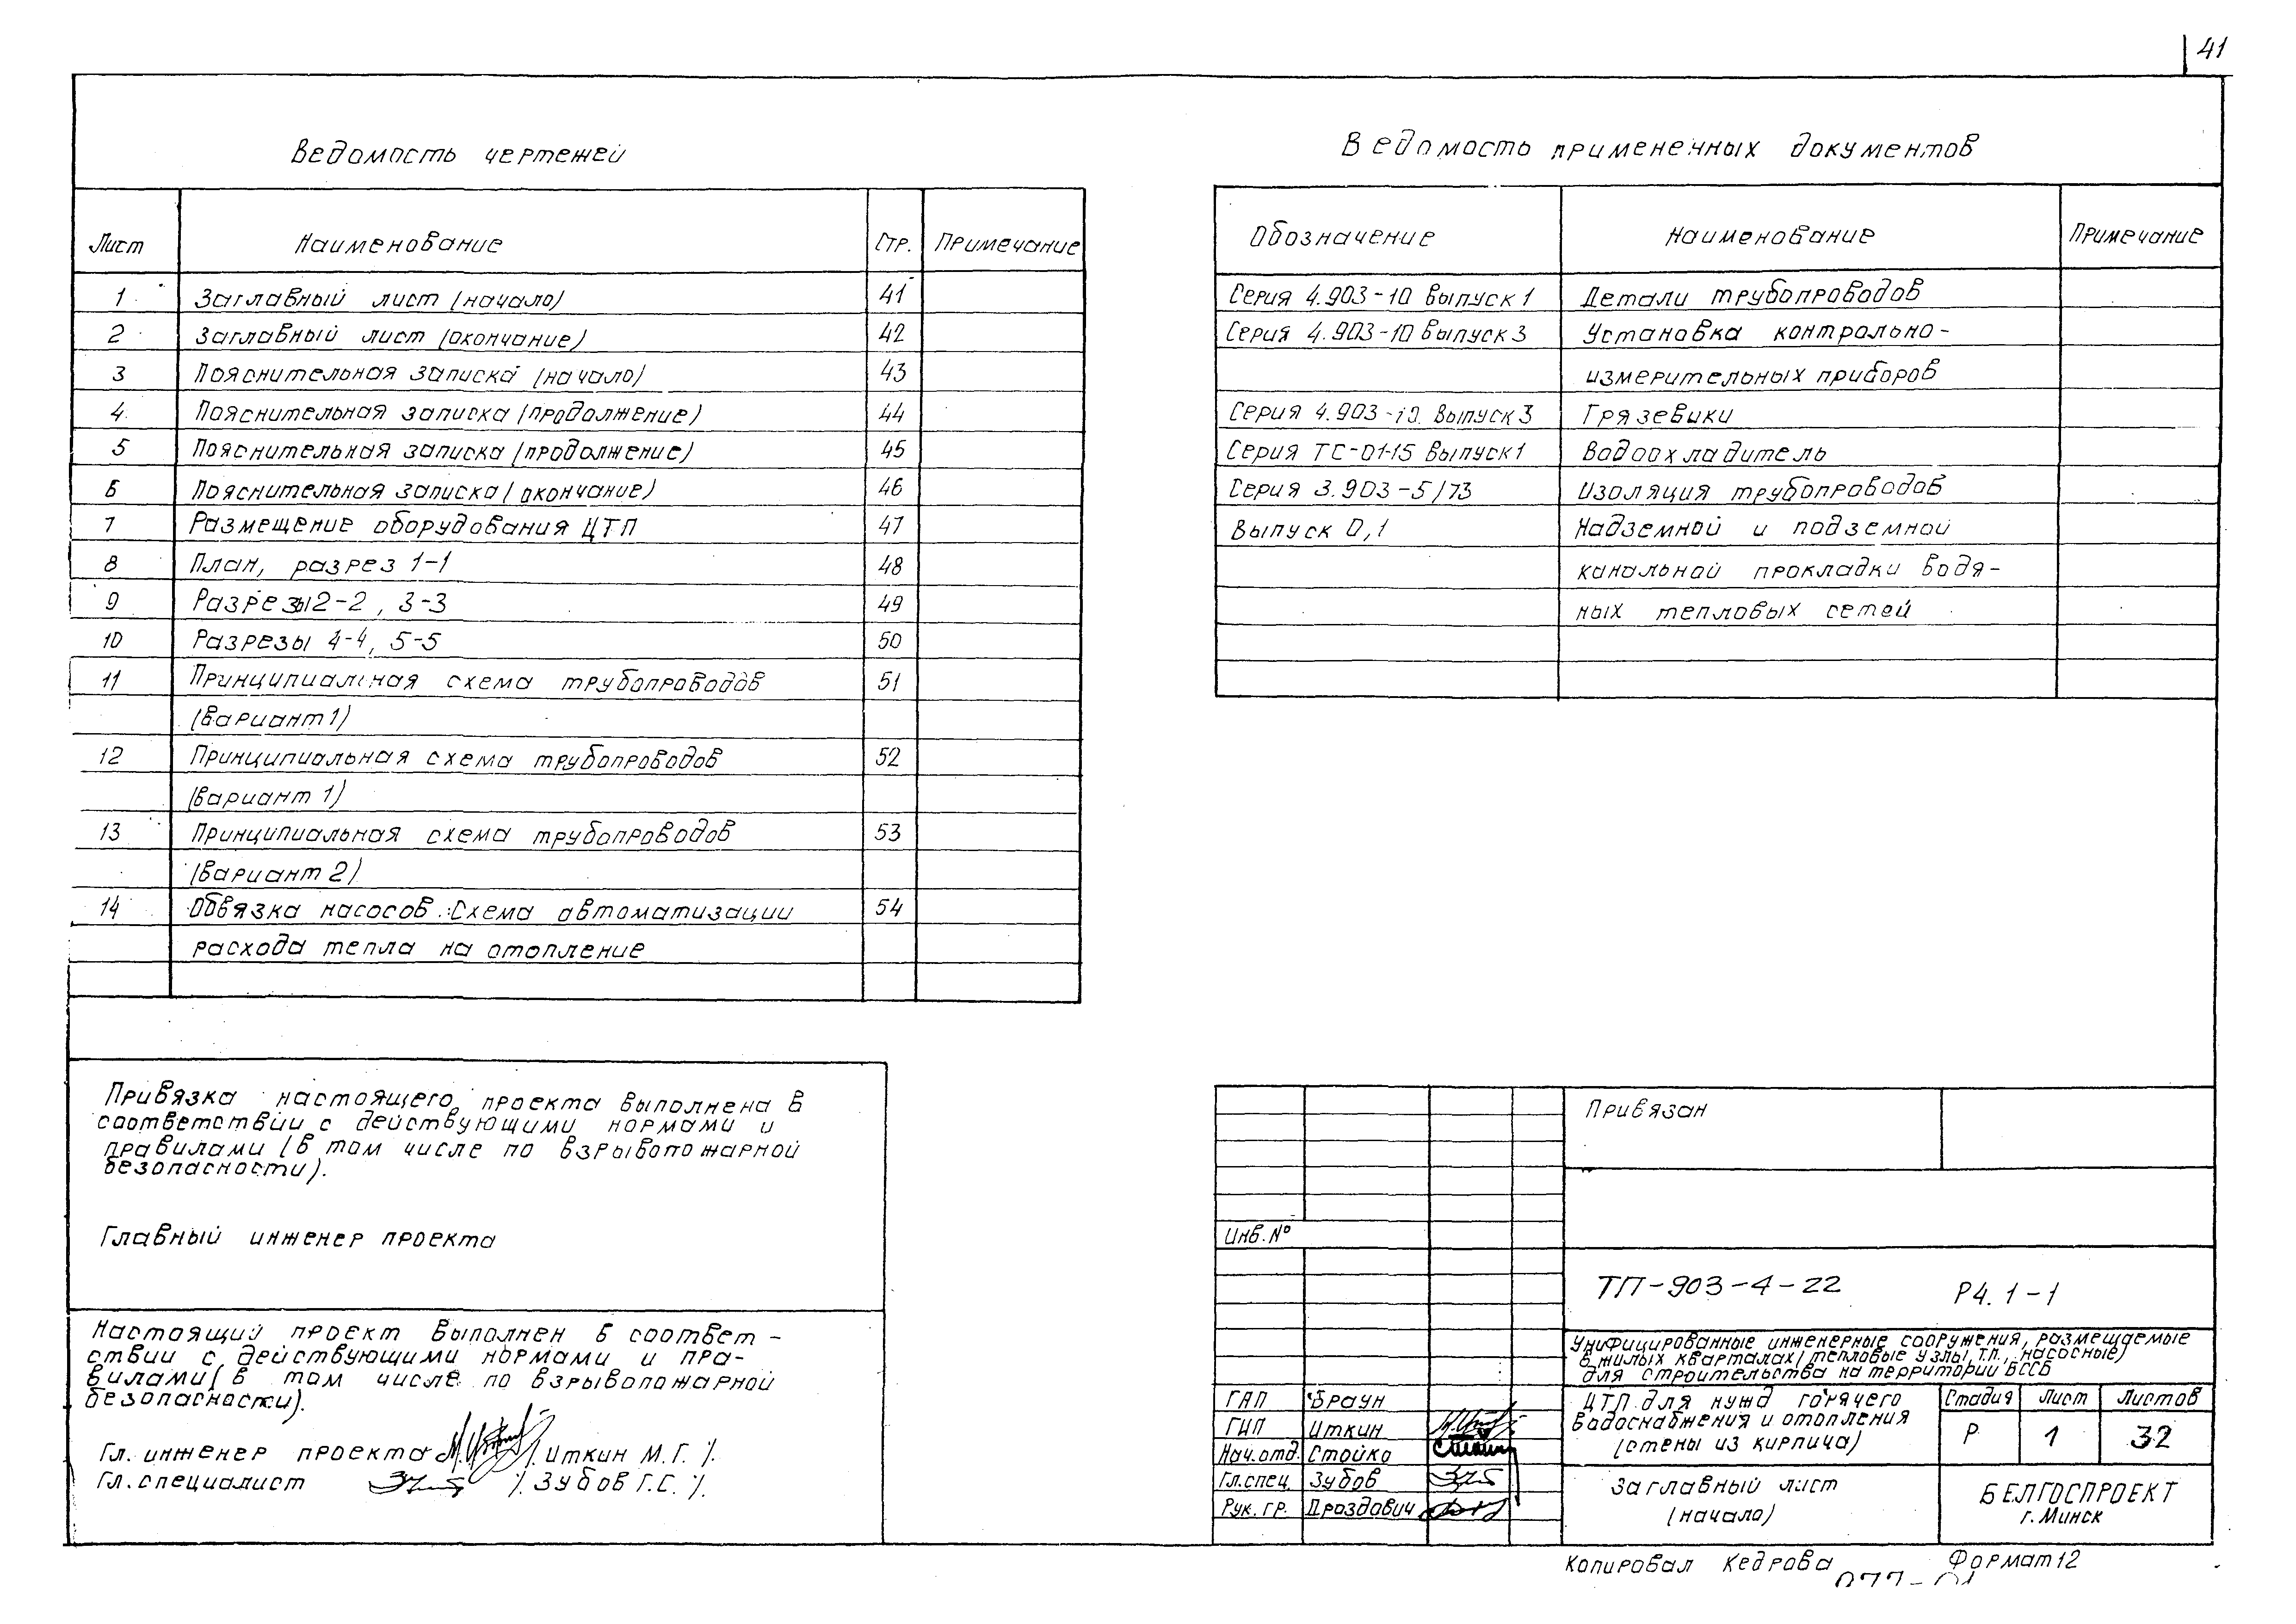 41
Ведомость чертежей
Лист Наименование Стр. Примечание
1 Заглавный лист (начало) 41
2 Заглавный лист (окончание) 42
3 Пояснительная записка (начало) 43
4 Пояснительная записка (продолжение) 44
5 Пояснительная записка (продолжение) 45
6 Пояснительная записка (окончание) 46
7 Размещение оборудования ЦТП 47
8 План, разрез 1-1 48
9 Разрезы 2-2, 3-3 49
10 Разрезы 4-4, 5-5 50
11 Принципиальная схема трубопроводов 51
(вариант 1)
12 Принципиальная схема трубопроводов 52
(вариант 1)
13 Принципиальная схема трубопроводов 53
(вариант 2)
14 Обвязка насосов. Схема автоматизации 54
расхода тепла на отопление
Ведомость примененных документов
Обозначение Наименование Примечание
Серия 4.903-10 Выпуск 1 Детали трубопроводов
Серия 4.903-10 Выпуск 3 Установка контрольно-
измерительных приборов
Серия 4.903-10. Выпуск 3 Грязевики
Серия ТС-01-15 Выпуск 1 Водоохладитель
Серия 3.903-5/73 Изоляция трубопроводов
Выпуск 0,1 Надземной и подземной
канальной прокладки водя-
ных тепловых сетей
Привязка настоящего проекта выполнена в
соответствии с действующими нормами и
правилами (в том числе по взрывопожарной
безопасности).
Главный инженер проекта
Настоящий проект выполнен в соответ-
ствии с действующими нормами и пра-
вилами (в том числе по взрывопожарной
безопасности).
Гл. инженер проекта /. Иткин М.Г. /.
Гл. специалист /. Зубов Г.С. /.
Привязан
Инв. №
ТП-903-4-22 Р4.1-1
Унифицированные инженерные сооружения, размещаемые
в жилых кварталах (тепловые узлы, т.п., насосные)
для строительства на территории БССР
ГАП Браун
ГИП Иткин
Нач. отд. Стойко
Гл. спец. Зубов
Рук. гр. Дроздович
ЦТП для нужд горячего
водоснабжения и отопления
(стены из кирпича)
Стадия Лист Листов
Р 1 32
Заглавный лист
(начало)
БЕЛГОСПРОЕКТ
г. Минск
Копировал Кедрова Формат 12